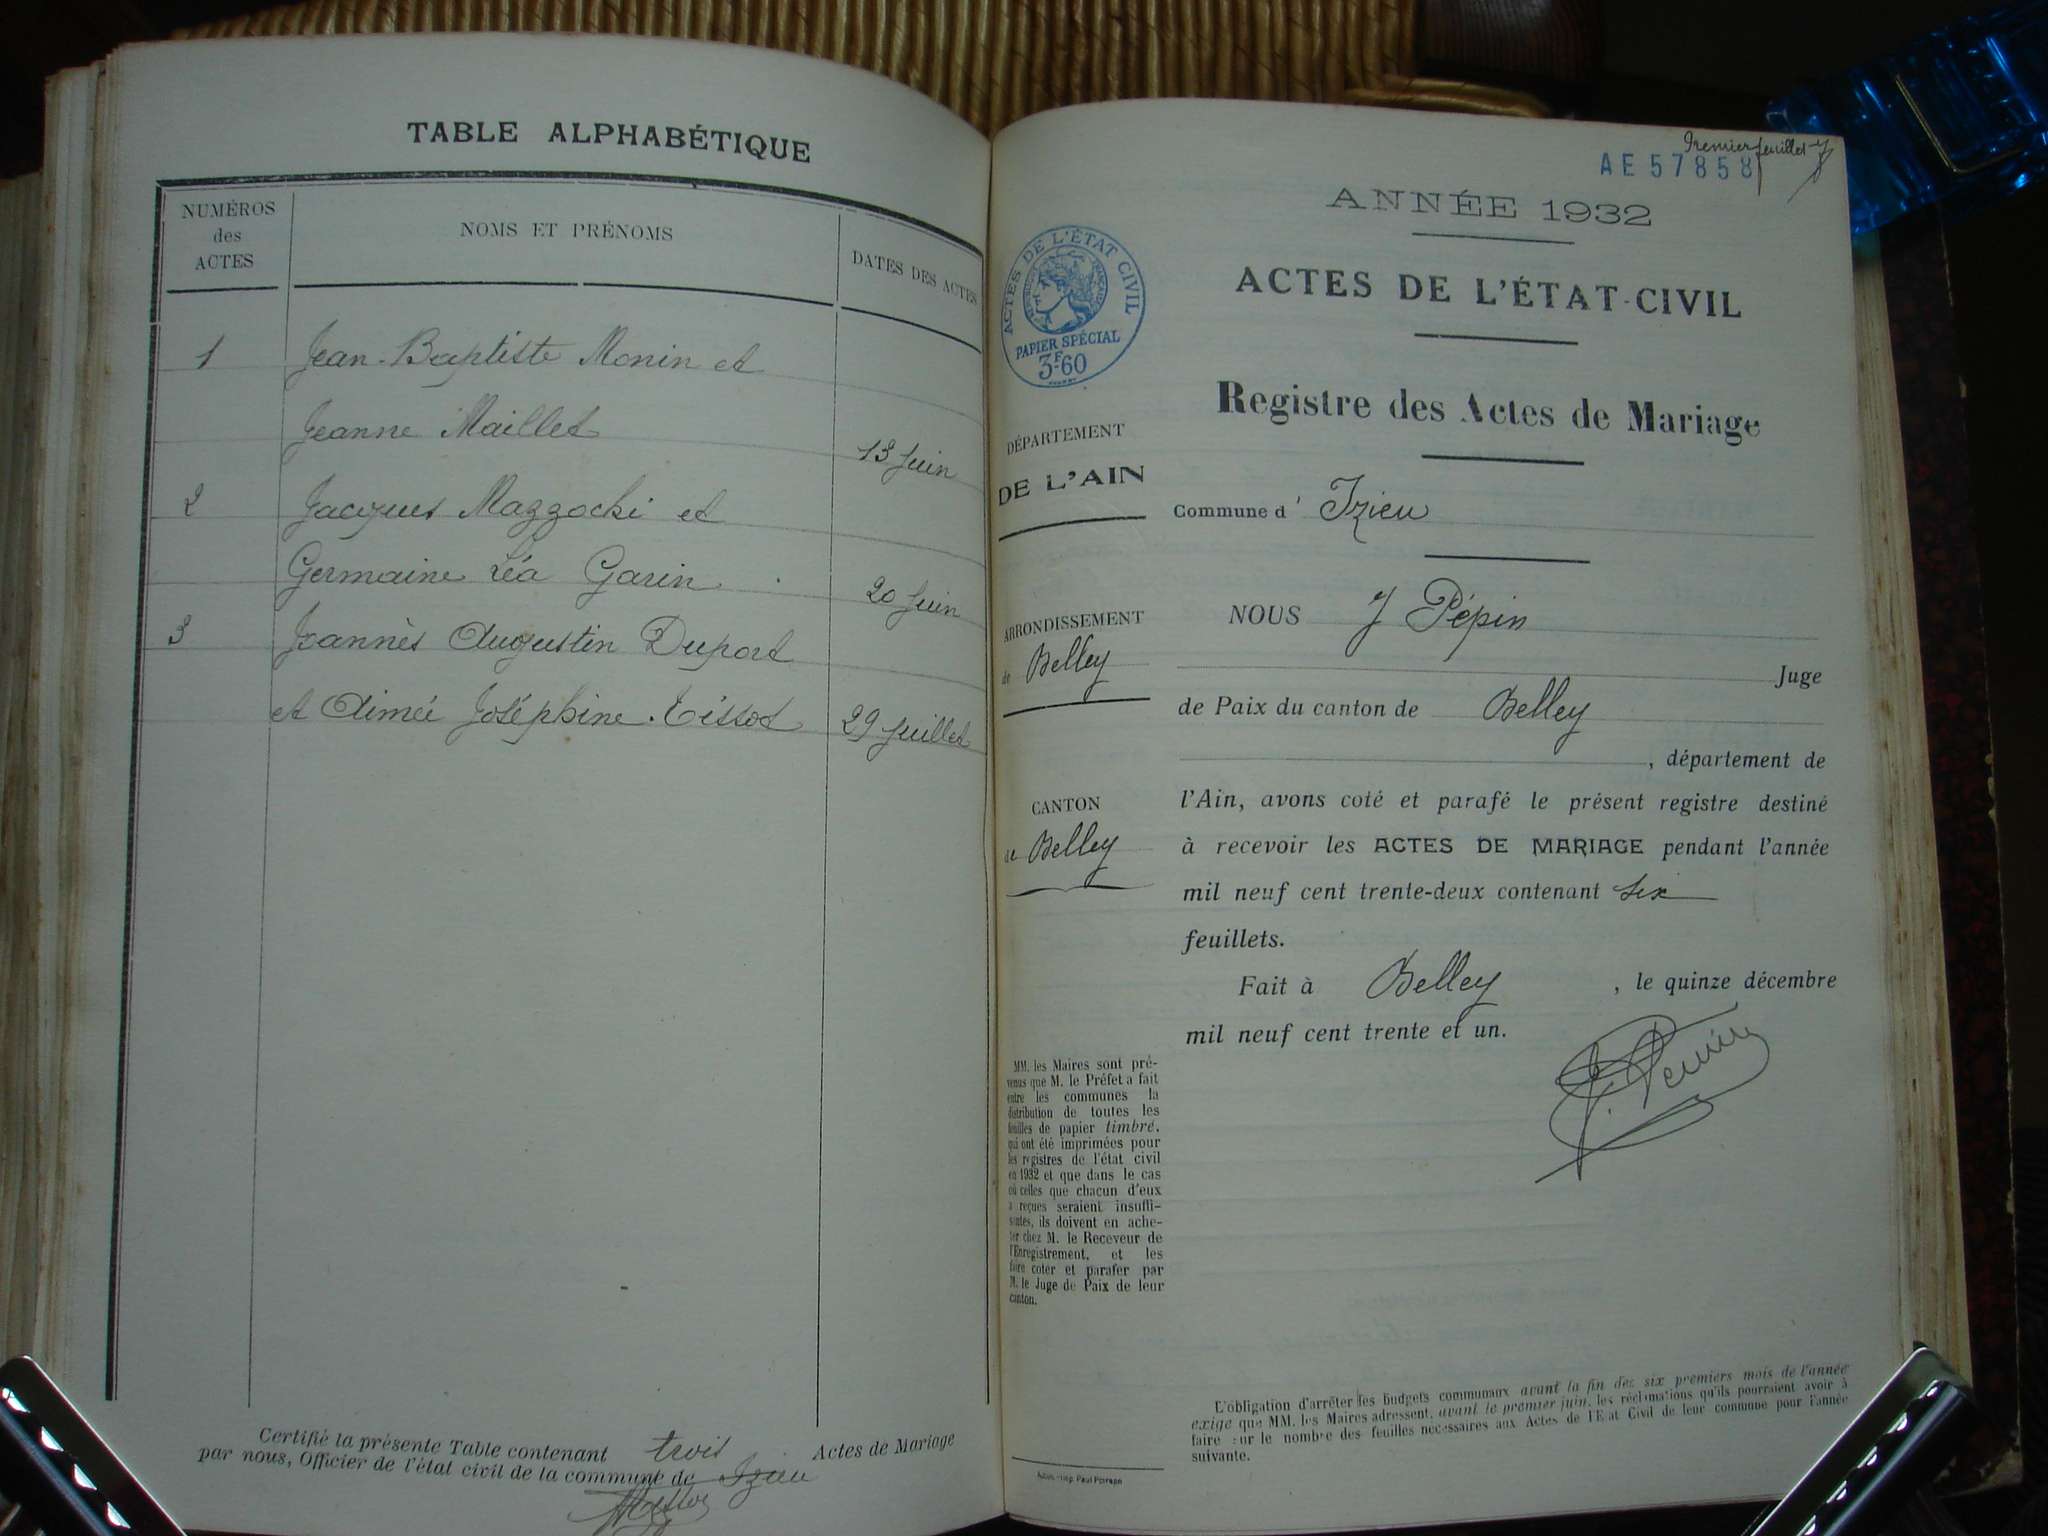 TABLE ALPHABÉTIQUE
NUMÉROS
des
ACTES
NOMS ET PRÉNOMS
DATES DES ACTES
1 Jean-Baptiste Monin et
Jeanne Maillet 13 Juin
2 Jacques Mazzochi et
Germaine Léa Garin 20 Juin
3 Joannès Augustin Duport
et Aimée Joséphine Tissot 29 Juillet
Certifié la présente Table contenant trois Actes de Mariage
par nous, Officier de l'état civil de la commune de Izieu
Premier feuillet
AE 57858
ANNÉE 1932
ACTES DE L'ÉTAT CIVIL
RÉPUBLIQUE FRANÇAISE
PAPIER SPÉCIAL
3F60
ACTES DE L'ÉTAT-CIVIL
Registre des Actes de Mariage
DÉPARTEMENT
DE L'AIN
Commune d' Izieu
ARRONDISSEMENT
de Belley
CANTON
de Belley
NOUS J Pépin
Juge
de Paix du canton de Belley
, département de
l'Ain, avons coté et parafé le présent registre destiné
à recevoir les ACTES DE MARIAGE pendant l'année
mil neuf cent trente-deux contenant six
feuillets.
Fait à Belley , le quinze décembre
mil neuf cent trente et un.
MM. les Maires sont pré-
venus que M. le Préfet a fait
entre les communes la
distribution de toutes les
feuilles de papier timbré,
qui ont été imprimées pour
les registres de l'état civil
en 1932 et que dans le cas
où celles que chacun d'eux
a reçues seraient insuffi-
santes, ils doivent en ache-
ter chez M. le Receveur de
l'Enregistrement, et les
faire coter et parafer par
M. le Juge de Paix de leur
canton.
L'obligation d'arrêter les budgets communaux avant la fin des six premiers mois de l'année
exige que MM. les Maires adressent, avant le premier juin, les réclamations qu'ils pourraient avoir à
faire sur le nombre des feuilles nécessaires aux Actes de l'État Civil de leur commune pour l'année
suivante.